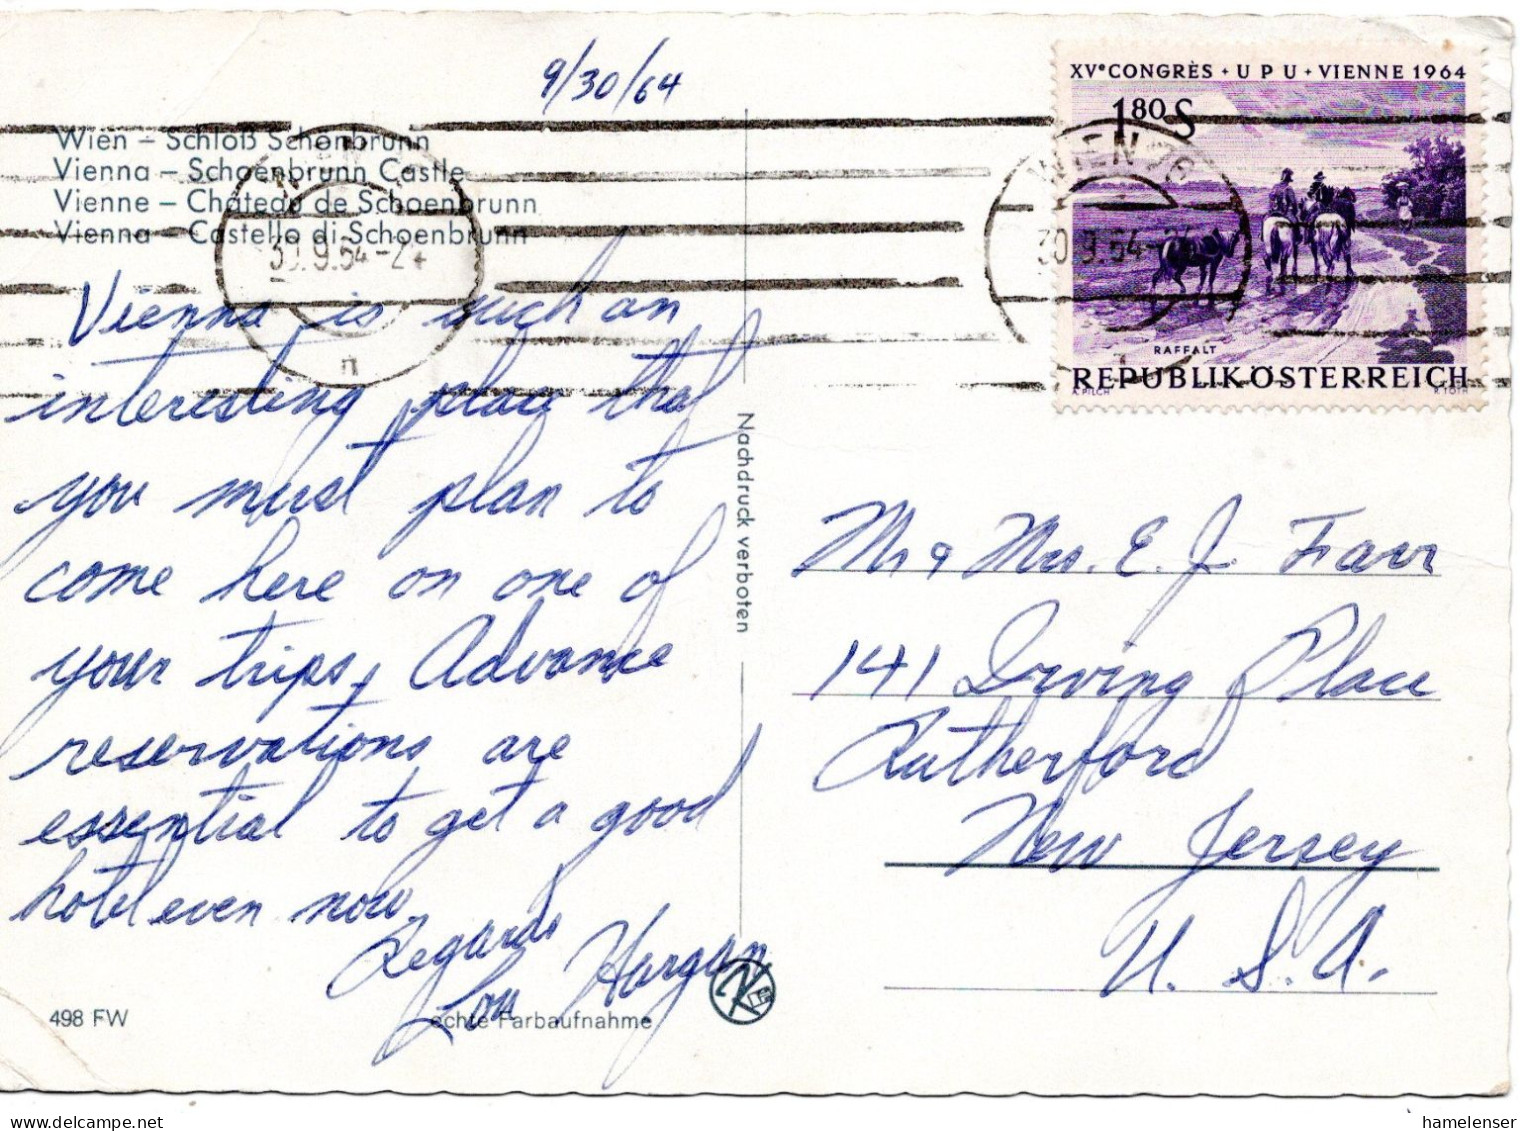 9/30/64
Wien – Schloß Schönbrunn
Vienna – Schoenbrunn Castle
Vienne – Château de Schoenbrunn
Vienna – Castello di Schoenbrunn
30.9.64-24
Vienna is such an
interesting place that
you must plan to
come here on one of
your trips. Advance
reservations are
essential to get a good
hotel even now
Regards
Lou Horgan
498 FW
echte Farbaufnahme
Nachdruck verboten
XVe CONGRÈS + UPU + VIENNE 1964
1.80 S
WIEN 76
30.9.64-24
RAFFALT
REPUBLIK ÖSTERREICH
A. PILCH
R. TOTH
Mr & Mrs. E. J. Farr
141 Irving Place
Rutherford
New Jersey
U. S. A.
www.delcampe.net
hamelenser